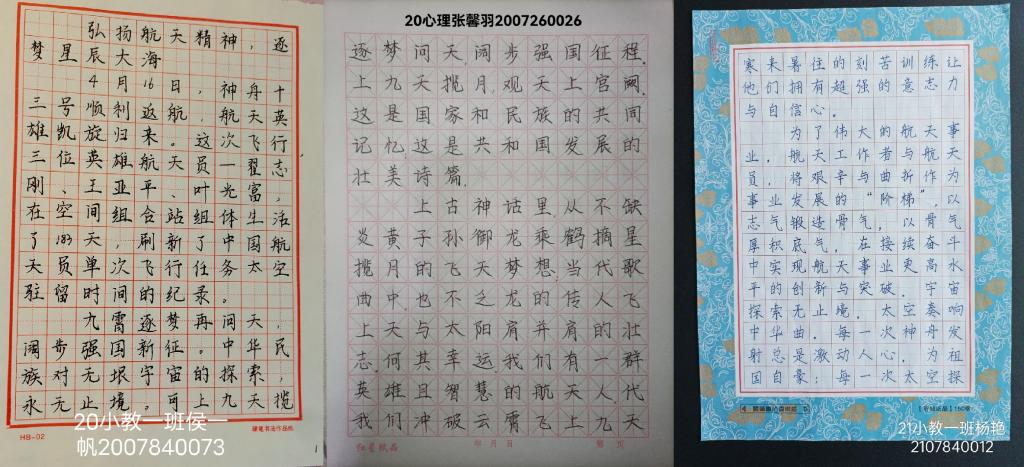 弘扬航天精神，逐
梦星辰大海
4月16日，神舟十
三号顺利返航，航天英
雄凯旋归来。这次飞行
三位英雄航天员一翟志
刚、王亚平、叶光富，
在空间组合站组体生活
了183天，刷新了中国航
天员单次飞行任务太空
驻留时间的纪录。
九霄逐梦再问天，
阔步强国新征。中华民
族对无垠宇宙的探索，
永无止境。可上九天揽
20小教一班侯一
帆2007840073
HB-02
硬笔书法作品纸
1
20心理张馨羽2007260026
逐梦问天,阔步强国征程.
上九天揽月,观天上宫阙.
这是国家和民族的共同
记忆,这是共和国发展的
壮美诗篇.
上古神话里,从不缺
炎黄子孙御龙乘鹤摘星
揽月的飞天梦想.当代歌
曲中,也不乏龙的传人飞
上天与太阳肩并肩的壮
志.何其幸运,我们有一群
英雄且智慧的航天人代
我们冲破云霄飞上九天
红星纸品
年 月 日
页
寒来暑往的刻苦训练让
他们拥有超强的意志力
与自信心。
为了伟大的航天事
业，航天工作者与航天
员，将艰辛与曲折作为
事业发展的“阶梯”，以
志气锻造骨气，以骨气
厚积底气，在接续奋斗
中实现航天事业更高水
平的创新与突破。宇宙
探索无止境，太空奏响
中华曲。每一次神舟发
射总是激动人心，为祖
国自豪；每一次太空探
21小教一班杨艳
2107840012